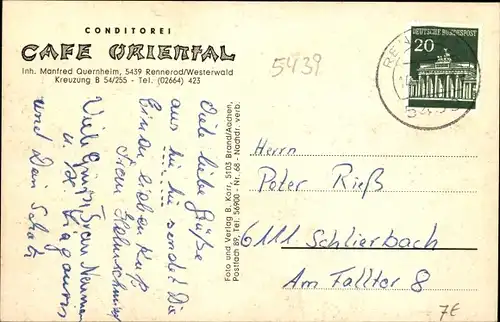 CONDITOREI
CAFE ORIENTAL
Inh. Manfred Quernheim, 5439 Rennerod/Westerwald
Kreuzung B 54/255 - Tel. (02664) 423
5439
DEUTSCHE BUNDESPOST
20
5439
Viele liebe Grüße
aus
sendet Dir
Einen lieben Kuß
Viele Grüße Frau Neumann
und Dein Schatz
Foto und Verlag B. Korr, 5103 Brand/Aachen,
Postfach 89, Tel. 56900 - Nr. 68 - Nachdr. verb.
Herrn
Peter Rieß
6111 Schlierbach
Am Falltor 8
7€